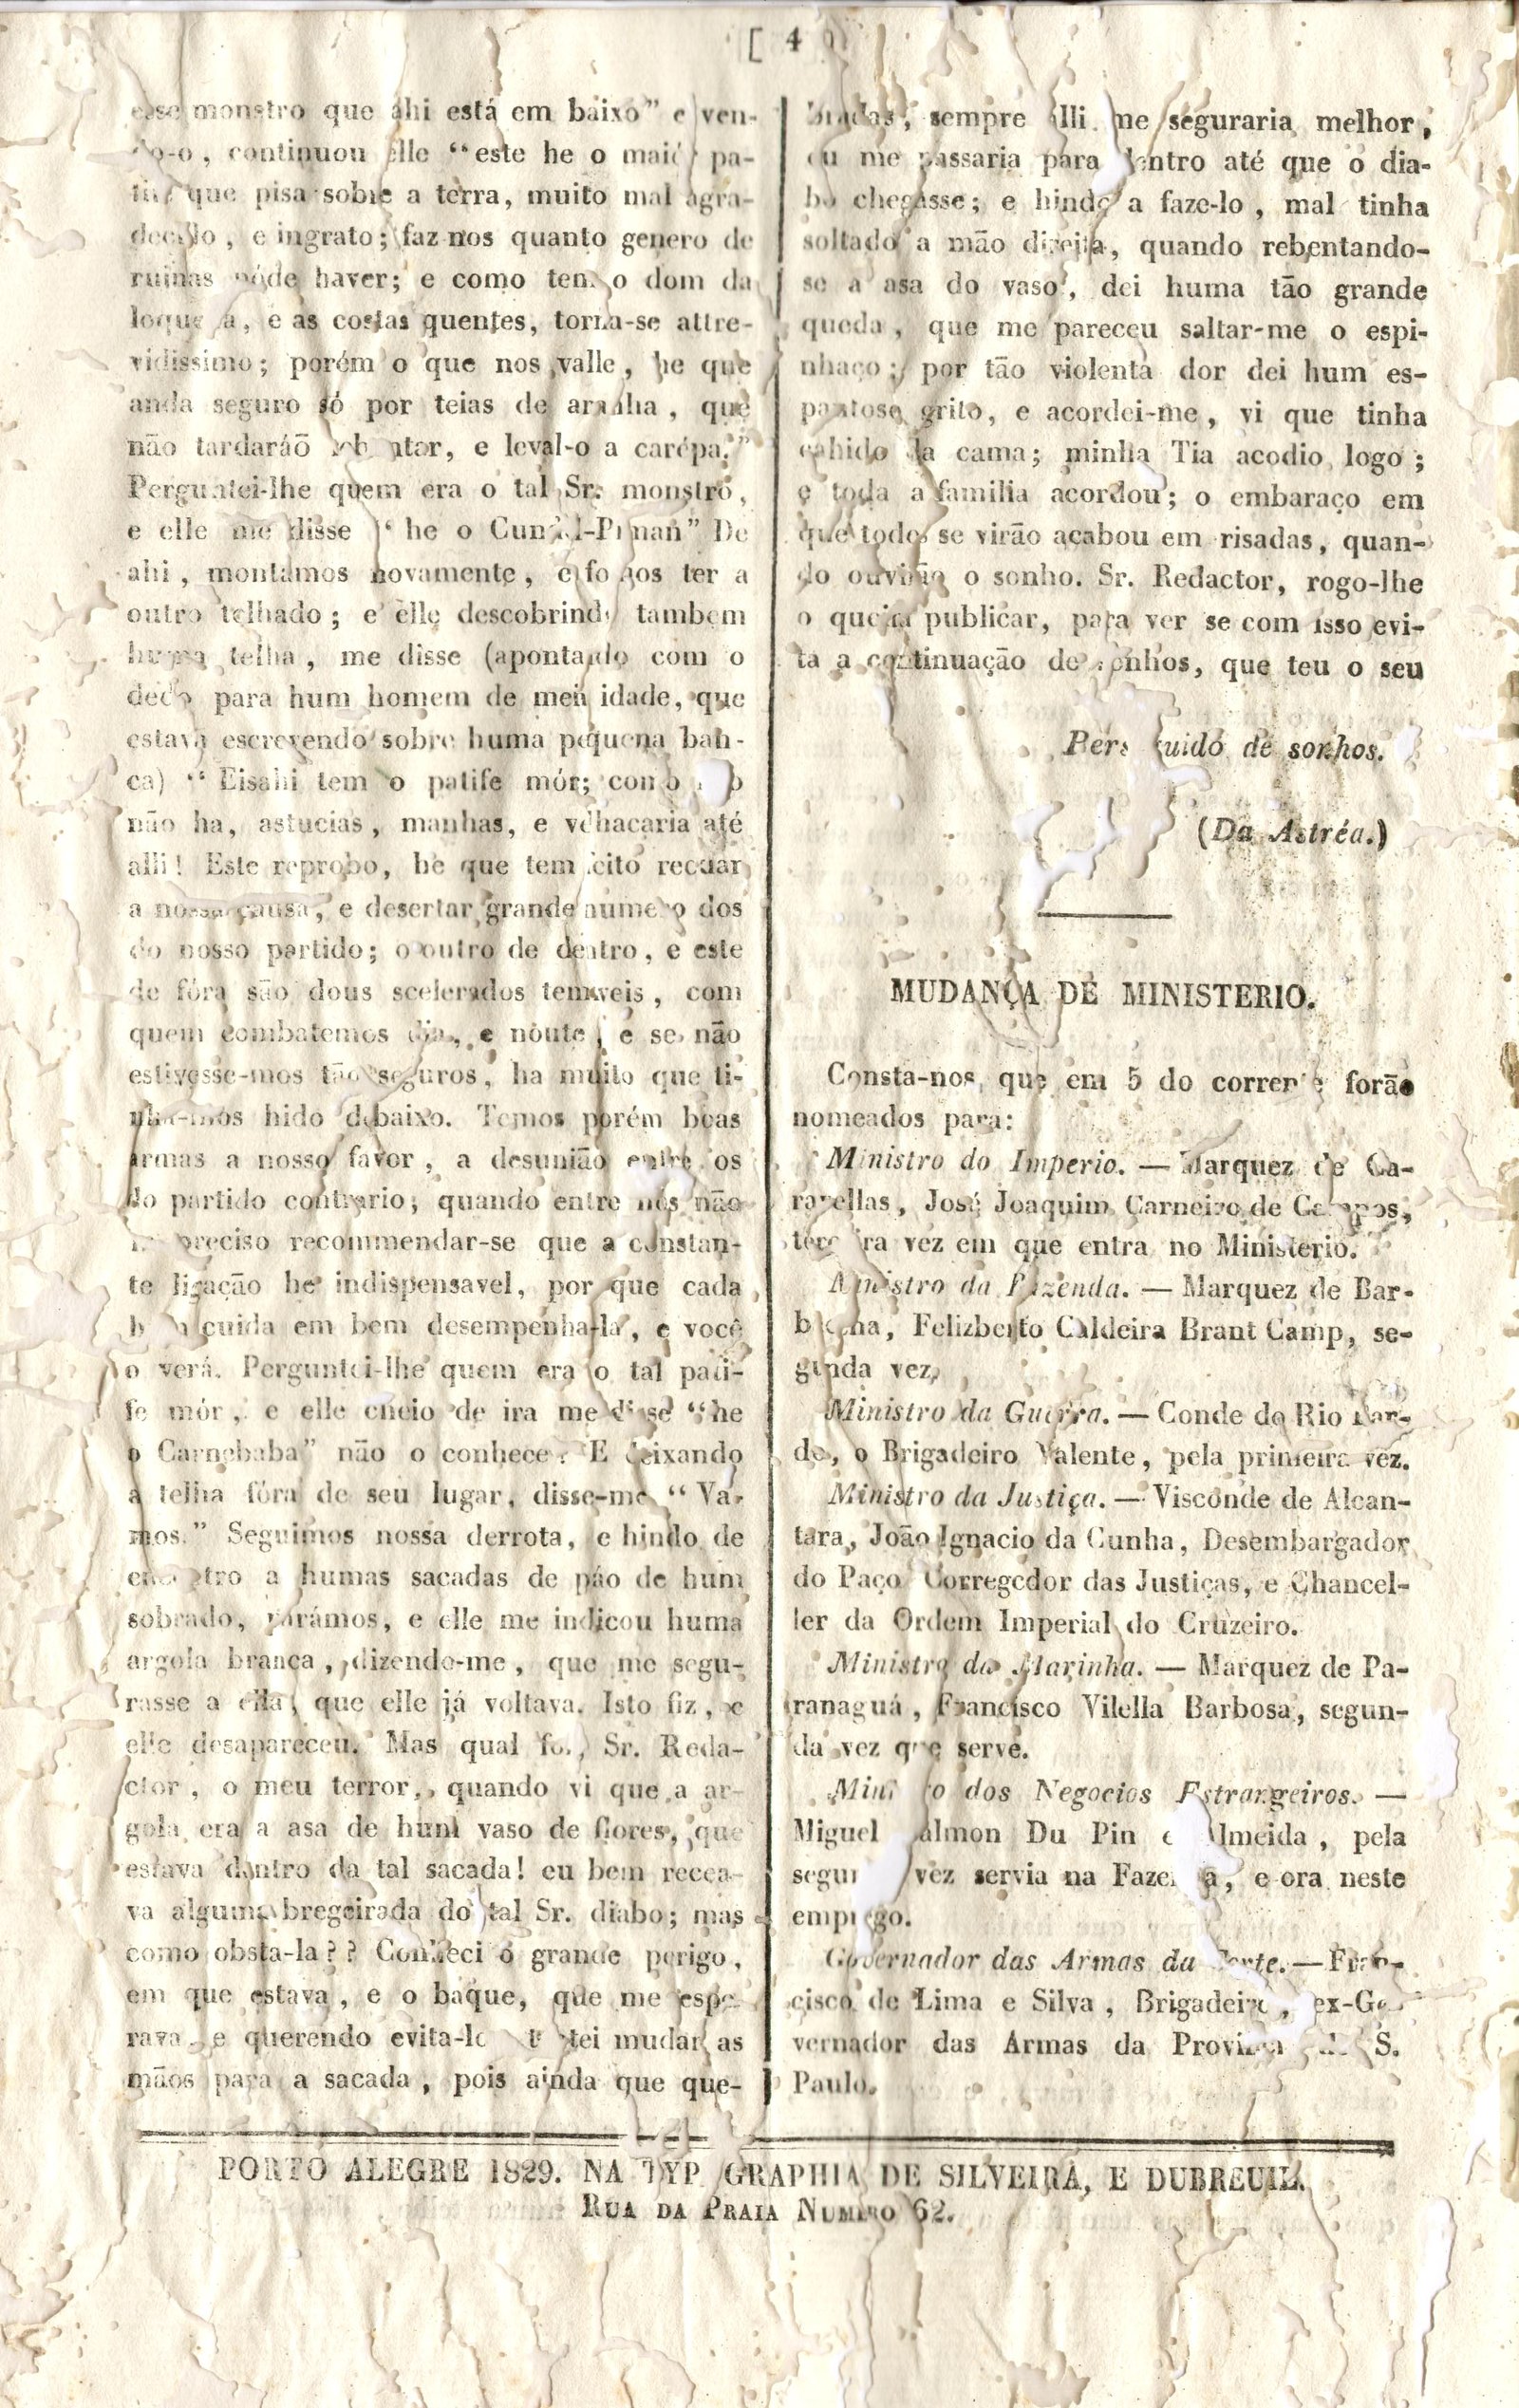 [ 4
esse monstro que ahi está em baixo" e ven-
do-o, continuou elle "este he o maior pa-
tife que pisa sobre a terra, muito mal agra-
decido, e ingrato; faz-nos quanto genero de
ruinas póde haver; e como tem o dom da
e as costas quentes, torna-se attre-
vidissimo; porém o que nos valle, he que
anda seguro só por teias de aranha, que
não tardaráõ rebentar, e leval-o a carépa."
Perguntei-lhe quem era o tal Sr. monstro,
e elle me disse "he o De
ahi, montámos novamente, e fomos ter a
outro telhado; e elle descobrindo tambem
huma telha, me disse (apontando com o
dedo para hum homem de meia idade, que
estava escrevendo sobre huma pequena ban-
ca) "Eisahi tem o patife mór; como
não ha, astucias, manhas, e velhacaria até
alli! Este reprobo, he que tem feito recuar
a nossa causa, e desertar grande numero dos
do nosso partido; o outro de dentro, e este
de fóra são dous scelerados temiveis, com
quem combatemos dia, e noute, e se não
estivesse-mos tão seguros, ha muito que ti-
nha-mos hido debaixo. Temos porém boas
armas a nosso favor, a desunião entre os
do partido contrario; quando entre nós não
preciso recommendar-se que a constan-
te ligação he indispensavel, por que cada
hum cuida em bem desempenha-la, e você
o verá. Perguntei-lhe quem era o tal pati-
fe mór, e elle cheio de ira me disse "he
o Carnebaba" não o conhece? E deixando
a telha fóra de seu lugar, disse-me "Va-
mos." Seguimos nossa derrota, e hindo de
encontro a humas sacadas de páo de hum
sobrado, parámos, e elle me indicou huma
argola branca, dizendo-me, que me segu-
rasse a ella, que elle já voltava. Isto fiz, e
elle desapareceu. Mas qual foi, Sr. Reda-
ctor, o meu terror, quando vi que a ar-
gola era a asa de hum vaso de flores, que
estava dentro da tal sacada! eu bem recea-
va alguma bregeirada do tal Sr. diabo; mas
como obsta-la?? Conheci o grande perigo,
em que estava, e o baque, que me espe-
rava, e querendo evita-lo tentei mudar as
mãos para a sacada, pois ainda que que-
bradas, sempre alli me seguraria melhor,
eu me passaria para dentro até que o dia-
bo chegasse; e hindo a faze-lo, mal tinha
soltado a mão direita, quando rebentando-
se a asa do vaso, dei huma tão grande
queda, que me pareceu saltar-me o espi-
nhaço; por tão violenta dor dei hum es-
pantoso grito, e acordei-me, vi que tinha
cahido da cama; minha Tia acodio logo;
e toda a familia acordou; o embaraço em
que todos se virão acabou em risadas, quan-
do ouvirão o sonho. Sr. Redactor, rogo-lhe
o queira publicar, para ver se com isso evi-
ta a continuação de sonhos, que teu o seu
Perseguido de sonhos.
(Da Astréa.)
MUDANÇA DE MINISTERIO.
Consta-nos, que em 5 do corrente forão
nomeados para:
Ministro do Imperio. — Marquez de Ca-
ravellas, José Joaquim Carneiro de Campos,
terceira vez em que entra no Ministerio.
Ministro da Fazenda. — Marquez de Bar-
bacena, Felizberto Caldeira Brant Camp, se-
gunda vez,
Ministro da Guerra. — Conde do Rio Par-
do, o Brigadeiro Valente, pela primeira vez.
Ministro da Justiça. — Visconde de Alcan-
tara, João Ignacio da Cunha, Desembargador
do Paço Corregedor das Justiças, e Chancel-
ler da Ordem Imperial do Cruzeiro.
Ministro da Marinha. — Marquez de Pa-
ranaguá, Francisco Vilella Barbosa, segun-
da vez que serve.
Ministro dos Negocios Estrangeiros. —
Miguel Calmon Du Pin e Almeida, pela
segunda vez servia na Fazenda, e ora neste
emprego.
Governador das Armas da Corte. — Fran-
cisco de Lima e Silva, Brigadeiro, ex-Go-
vernador das Armas da Provincia de S.
Paulo.
PORTO ALEGRE 1829. NA TYPOGRAPHIA DE SILVEIRA, E DUBREUIL.
RUA DA PRAIA NUMERO 62.